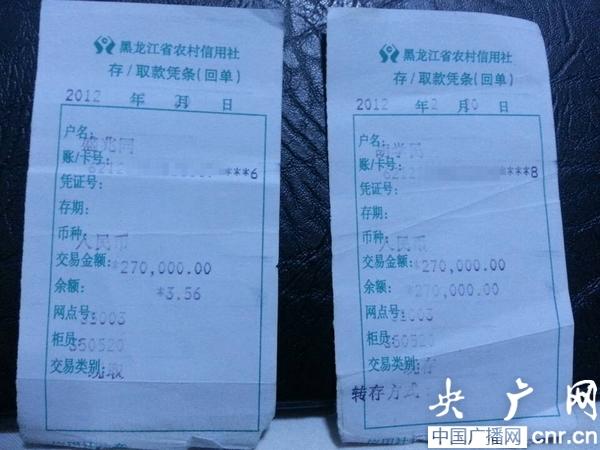 黑龙江省农村信用社
存/取款凭条(回单)
2012 年 日
户名:
账/卡号:
***6
凭证号:
存期:
币种:
人民币
交易金额: *270,000.00
余额: *3.56
网点号:
柜员: 360520
交易类别: 现取
黑龙江省农村信用社
存/取款凭条(回单)
2012 年 2 日
户名:
账/卡号:
****8
凭证号:
存期:
币种:
人民币
交易金额: *270,000.00
余额: *270,000.00
网点号:
柜员: 360520
交易类别: 现存
转存方式
央广网
中国广播网 cnr.cn